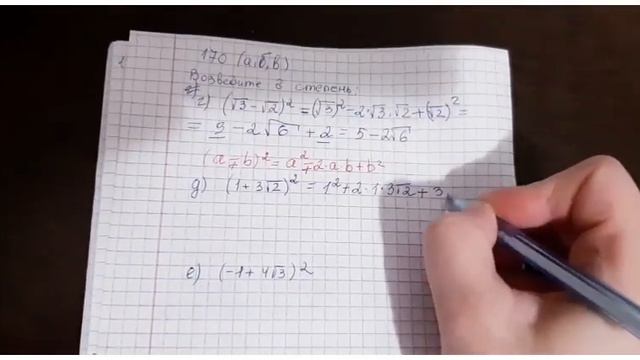 1
170 (а,б,в)
Возведите в степень:
г) (√3 - √2)² = (√3)² - 2·√3·√2 + (√2)² =
= 3 - 2√6 + 2 = 5 - 2√6
(a ∓ b)² = a² ∓ 2·ab + b²
д) (1 + 3√2)² = 1² + 2·1·3√2 + 3
е) (-1 + 4√3)²